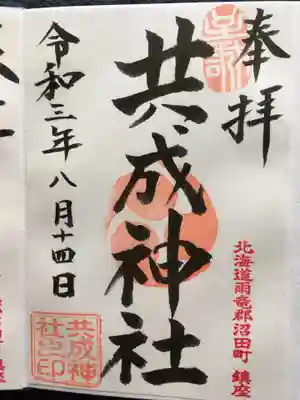 奉拝
共成神社
令和三年八月十四日
北海道雨竜郡沼田町 鎮座
共成神
社之印